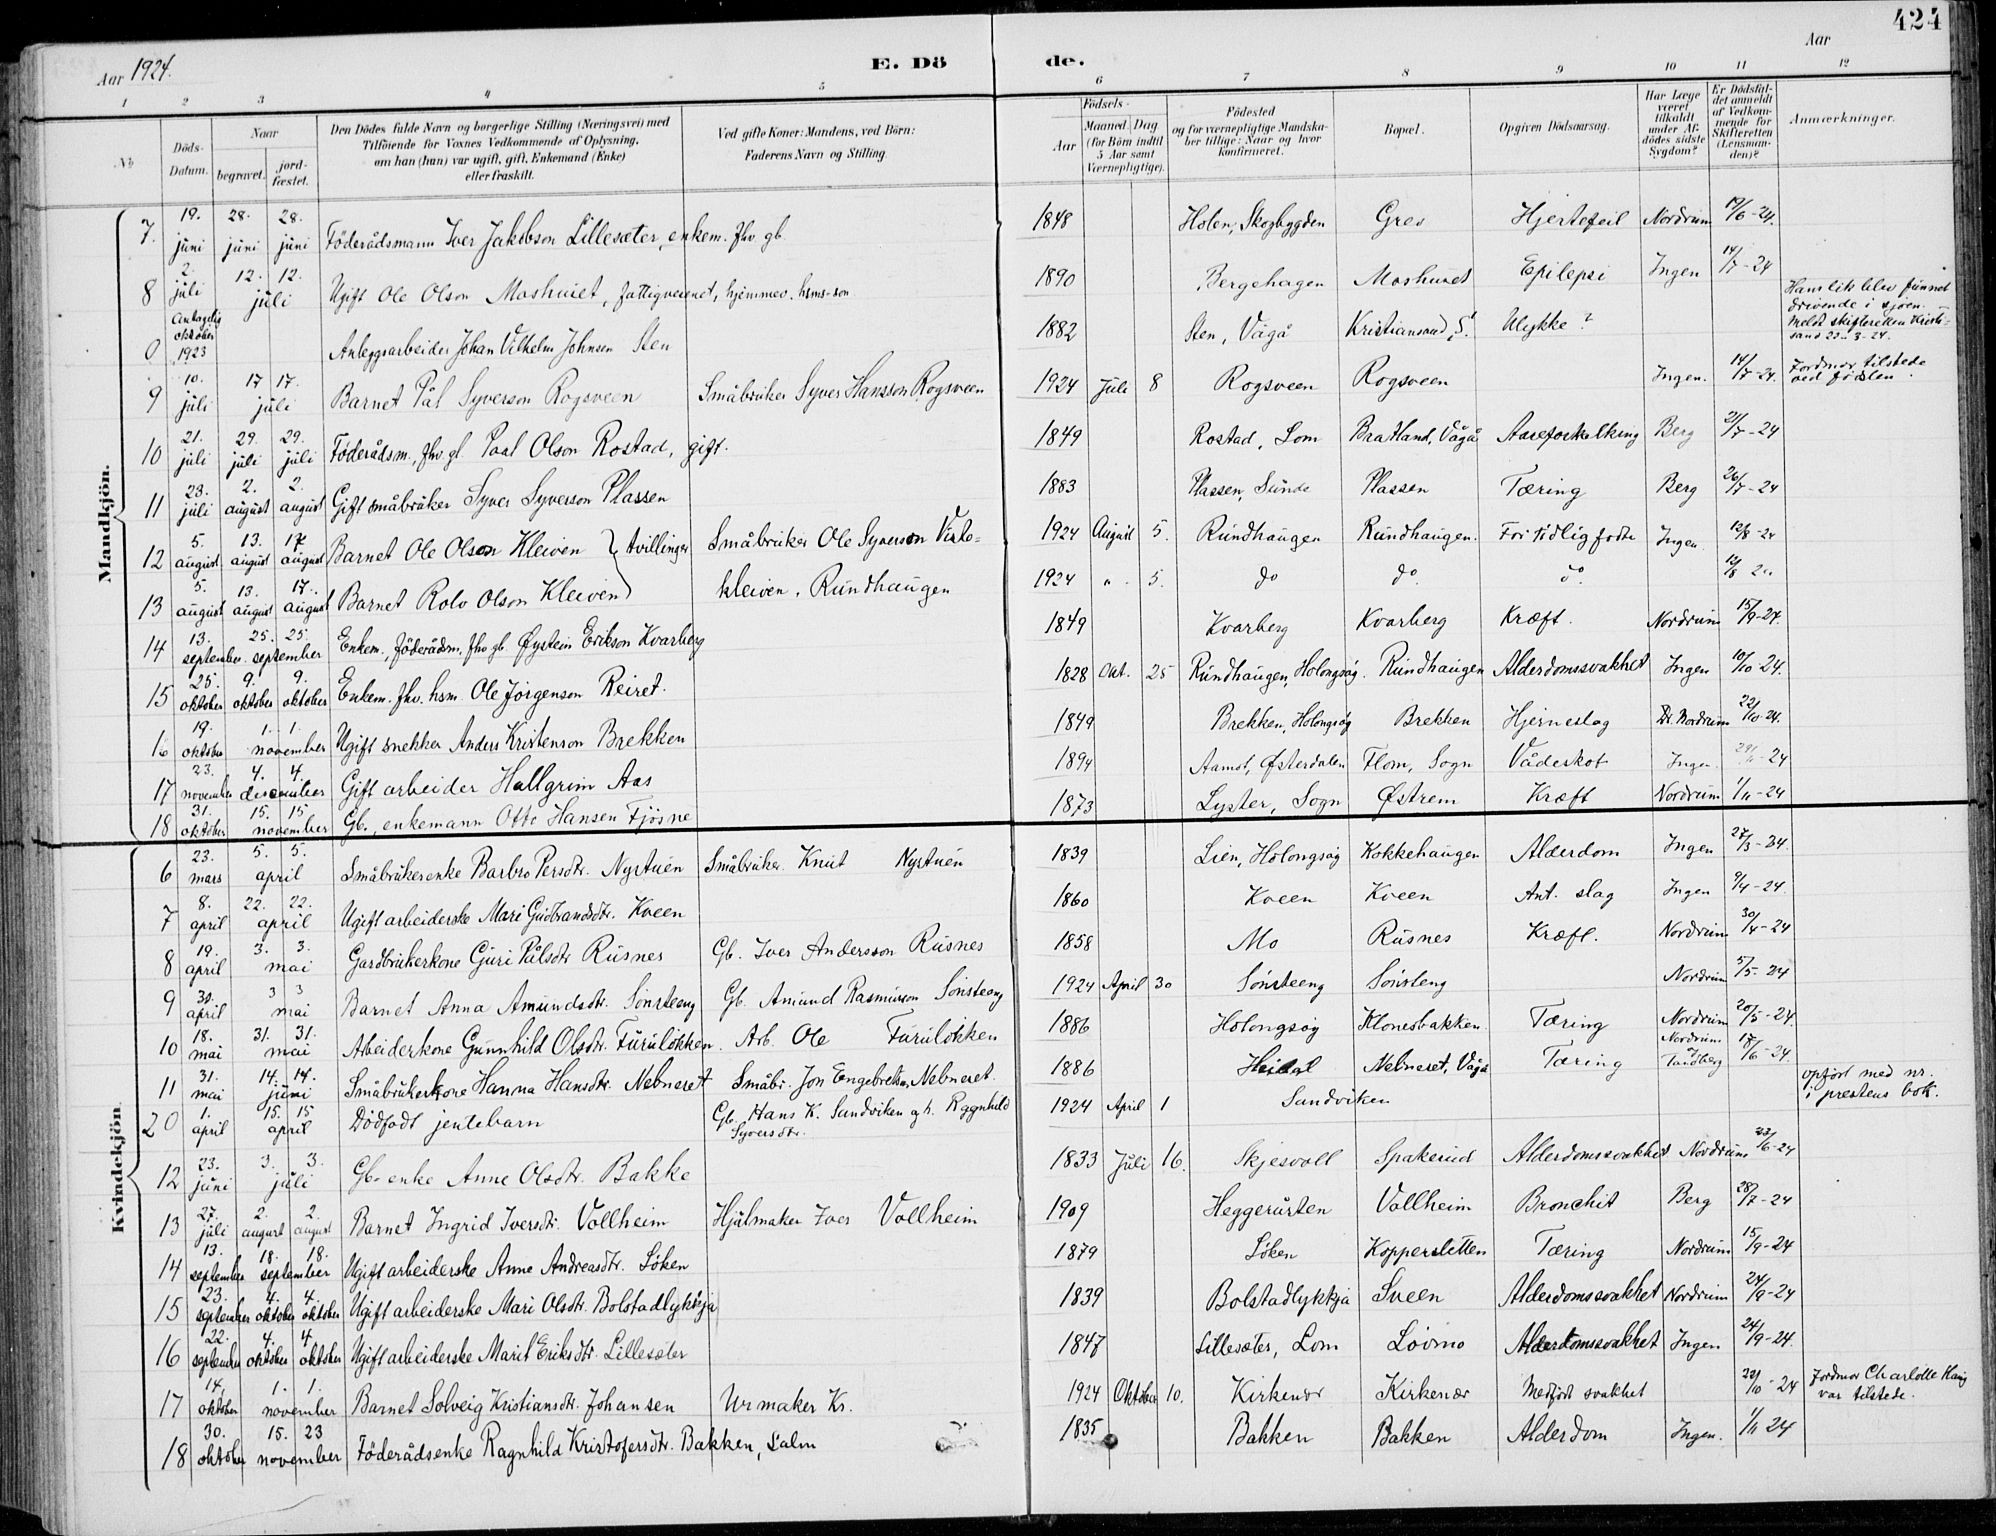 424
Aar 1924. E. Dö de. Aar
1 2 3 4 5 6 7 8 9 10 11 12
No
Döds-Datum.
Naar
begravet.
jord-fæstet.
Den Dödes fulde Navn og borgerlige Stilling (Næringsvei) med
Tilföiende for Voxnes Vedkommende af Oplysning,
om han (hun) var ugift, gift, Enkemand (Enke)
eller fraskilt.
Ved gifte Koner: Mandens, ved Börn:
Faderens Navn og Stilling
Födsels-
Aar
Maaned. Dag
(for Börn indtil
5 Aar samt
Værnepligtige).
Födested
og for værnepligtige Mandska-
ber tillige: Naar og hvor
konfirmeret.
Bopæl.
Opgiven Dödsaarsag.
Har Læge
været
tilkaldt
under Af-
dödes sidste
Sygdom?
Er Dödsfal-
det anmeldt
af Vedkom-
mende for
Skifteretten
(Lensman-
den)?
Anmærkninger.
Mandkjön.
7. 19. juni 28. juni 28. juni Föderådsmann Iver Jakobson Lillesæter, enkem. fhv gb. 1848 Holen, Skogbygden Grev Hjertefeil Nordrum 19/6-24.
8 2. juli 12. 12. juli Ugift Ole Olson Moshuset, fattigveienet, hjemmev. hsms-son 1890 Bergehagen Moshuset Epilepsi Ingen 14/7-24
0 Antagelig oktober 1923 Anleggsarbeider Johan Vilhelm Johnsen Sten 1882 Sten, Vågå Kristiansand S. Ulykke? Hans lik blev funnet
drivende i sjøen.
Meldt skifteretten Kristi-
sand 22-3-24.
9 10. juli 17 17. juli Barnet Pål Syverson Rogsveen Småbruker Syver Hansson Rogsveen 1924 Juli 8 Rogsveen Rogsveen Ingen. 14/7-24. Jordmor tilstede
ved fødslen.
10 21. juli 29. juli 29. juli Föderådsm., fhv. gb. Paal Olson Rostad, gift. 1849 Rostad, Lom Bratland, Vågå Aareforkalkning Berg 21/7-24
11 23. juli 2. august 2. august Gift småbruker Syver Syverson Plassen 1883 Plassen, Sunde Plassen Tæring Berg 26/7-24
12 5. august 13. august 17 august Barnet Ole Olson Kleiven } tvillinger Småbruker Ole Syverson Vislo- 1924 August 5. Rundhaugen Rundhaugen. For tidlig fødte Ingen. 12/8-24
13 5. august 13. august 17. august Barnet Rolv Olson Kleiven kleiven, Rundhaugen 1924 " 5. do do. do. 12/8 24
14 13. september 25. 25. september Enkem., föderådsm. fhv gb. Øystein Erikson Kvarberg 1849 Kvarberg Kvarberg Kræft. Nordrum 15/9-24.
15 25. oktober 9. oktober 9. oktober Enkem. fhv. hsm. Ole Jörgenson Reiret. 1828 Okt. 25 Rundhaugen, Holongsøy. Rundhaugen Alderdomssvakhet Ingen 10/10-24.
16 19. oktober 1. 1. november Ugift snekker Anders Kristenson Brekken 1849 Brekken, Holongsøy Brekken Hjerneslag Dr. Nordrum 22/10-24.
17 23. november 4. 4. december Gift arbeider Hallgrim Aas 1894 Aamot, Østerdalen Flom, Sogn Vådeskot Ingen 29/11-24
18 31. oktober 15. 15 november Gb., enkemann Otto Hansen Fjösne 1873 Lyster, Sogn Østrem Kræft Nordrum 1/11-24
Kvindekjön.
6 23. mars 5. 5. april Småbrukerenke Barbro Persdtr. Nystuen Småbruker Knut Nystuen 1839 Lien, Holongsøy Kokkehaugen Alderdom Ingen 27/3-24
7 8. april 22. 22. april Ugift arbeiderske Mari Gudbrandsdtr. Kveen 1860 Kveen Kveen Ant. slag Ingen 9/4-24.
8 19. april 3. 3. mai Gardbrukerkone Guri Pålsdtr Rusnes Gb. Iver Andersson Rusnes 1858 Mo Rusnes Kræft. Nordrum 30/4-24
9 30. april 3 3 mai Barnet Anna Amundsdtr. Sonsteeng Gb. Amund Rasmusson Sonsteeng 1924 April 30 Sonsteeng Sonsteng Nordrum 5/5-24
10 18. mai 31. 31. mai Abeiderkone Gunnhild Olsdtr. Furulökken. Arb. Ole Furulökken 1886 Holongsøy Klonesbakken. Tæring Nordrum 20/5-24.
11 31. mai 14. 14. juni Småbrukerkone Hanna Hansdtr. Nebneret Småbr. Jon Engebretsen Nebneret. 1886 Heidal Nebneret, Vågå Tæring Nordrum og Tandberg 17/6-24.
20 1. april 15. 15 april Dödfödt jentebarn Gb. Hans K. Sandviken g.h. Ragnhild
Syversdtr. 1924 April 1 Sandviken opført med nr.
i prestens bok.
12 23. juni 3. 3. juli Gb-enke Anne Olsdtr. Bakke 1833 Juli 16. Skjesvoll Spakerud Alderdomssvakhet Nordrum 23/6-24
13 27. juli 2. august 2. august Barnet Ingrid Iversdtr. Vollheim Hjulmaker Iver Vollheim 1909 Heggerusten Vollheim Bronchit Berg 28/7-24
14 13. september 18. 18. september Ugift arbeiderske Anne Andreasdtr. Söken 1879 Söken Koppersletten Tæring Nordrum 15/9-24
15 23. september 4. oktober 4. oktober Ugift arbeiderske Mari Olsdtr. Bolstadlykkja 1839 Bolstadlykkja Sveen Alderdomssvakhet Nordrum 24/9-24
16 22. september 4. oktober 4 oktober Ugift arbeiderske Marit Eriksdtr. Lillesæter 1847 Lillesæter, Lom Lövmo Alderdomssvakhet Ingen 24/9-24.
17 14. oktober 1. 1. november Barnet Solveig Kristiansdtr. Johansen Urmaker Kr. 1924 Oktober 10. Kirkenor Kirkenor Medfödt svakhet 22/10-24 Jordmor Charlotte Haug
var tilstede.
18 30. oktober 15. 23 november Föderådsenke Ragnhild Kristofersdtr. Bakken, Salm 1835 Bakken Bakken Alderdom Ingen. 1/11 24